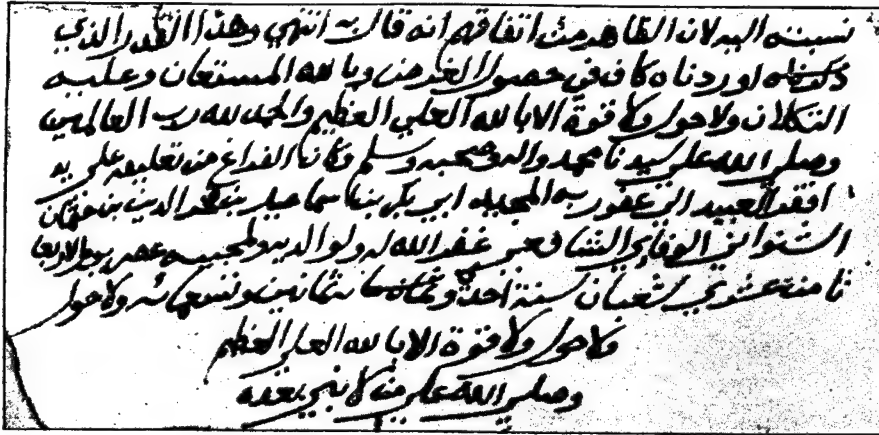 نسبته اليه لان الظاهر من اتفاقهم انه قال به انتهي وهذا القدر الذي
لوردناه كاف في حصول الغرض وبالله المستعان وعليه
التكلان ولا حول ولا قوة الا بالله العلي العظيم والحمد لله رب العالمين
وصلي الله علي سيدنا محمد واله وصحبه وسلم وكان الفراغ من تعليقه علي يد
افقر العبيد الي عفور به المجيد ابي بكر بن اسماعيل بن شهاب الدين بن
الشنواني الوفاي الشافعي غفر الله له ولوالديه ولمحبيه عصر يوم الاربعا
ثامنة عشري شعبان سنة احدي وثمانين وتسعمائه ولا حول
ولا حول ولا قوة الا بالله العلي العظيم
وصلي الله علي من لا نبي بعده